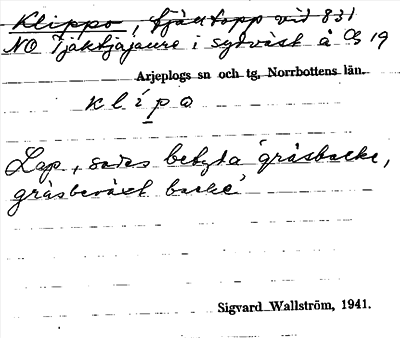 Klippo, fjälltopp vid 831
NO Tjäktjajaure i sydväst å Gs 19
Arjeplogs sn och tg, Norrbottens län.
klipo
Lap., sades betyda "gräsbacke,
gräsbeväxt backe"
Sigvard Wallström, 1941.